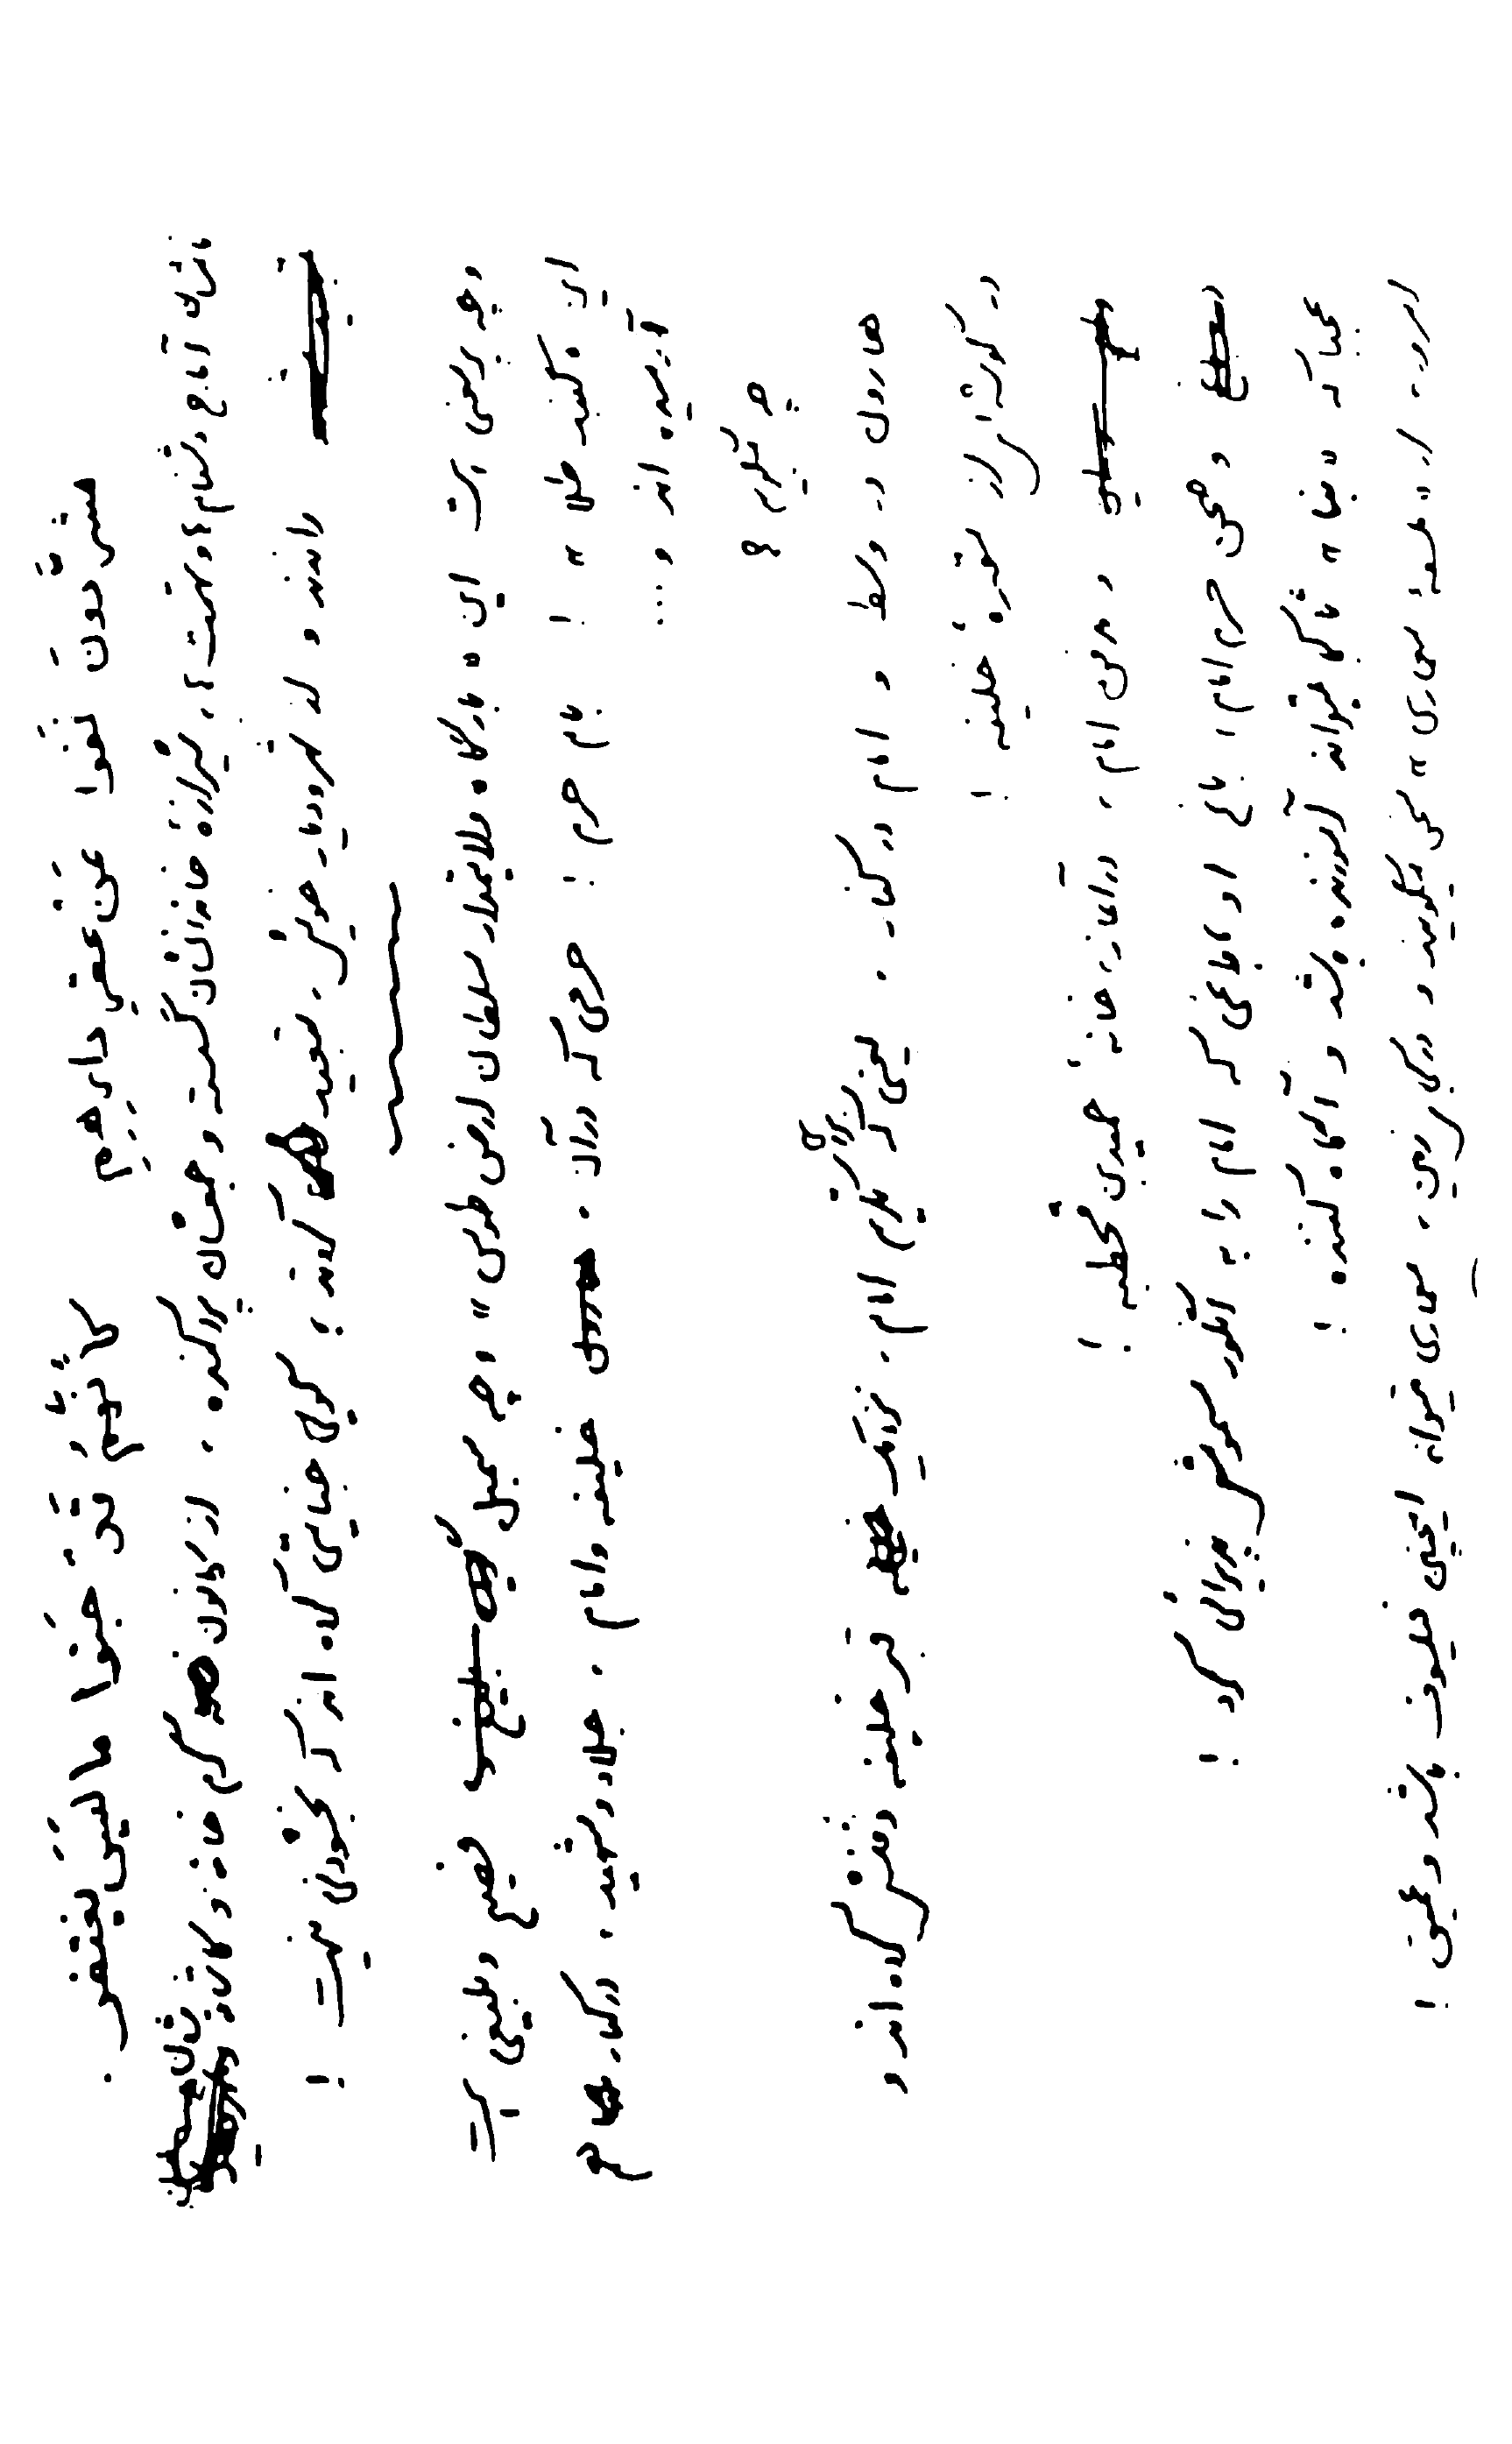 مشرّدونَ نُفوا عَن عقرِ دارِهِم   كأنَّهُم قَد جَنوا ما ليسَ يُغتفر .
آماج دشنام؟ و تهمت؟، شیرازهٔ خاندانشان گسسته و جمعشان پراکنده . از کانون گرم خانه و کاشانه شان
راندند و از شهر و دیار خویش، تبعید کردند؛ گویی جنایتی کرده اند که بخشودنی نیست !
و چه پر معنی است این « بارگاه سلطان ارض طوس » و چه سمبل فصیح و بلیغی است
این « گنبد طلا » ! بام حرم ! حرمی که در آن، خلیفه و امام، جلاد و شهید، در کنار هم
آرمیده اند و ...
چه میگویم ؟
هارون در وسط و امام در کنار . یعنی که برای تکریم امام، نزدیک قبر خلیفه دفنش کرده اند و
در گوشه ای از مقبرهٔ خلیفه !
و مدفن امام، در آغاز، خانهٔ حمیدبن قحطبه !
و صحن حرم امام، باغ او یا باغی که امام را به انگور مسمومش پذیرائی کرد !
عجبا که « بنا » تا کجا میتواند آموزنده باشد و آگاه کننده !
امروز، از « فلسفهٔ معماری » سخن میگویند و در کجای زمین، معماری میتواند اینچنین فیلسوف باشد و عمیق !